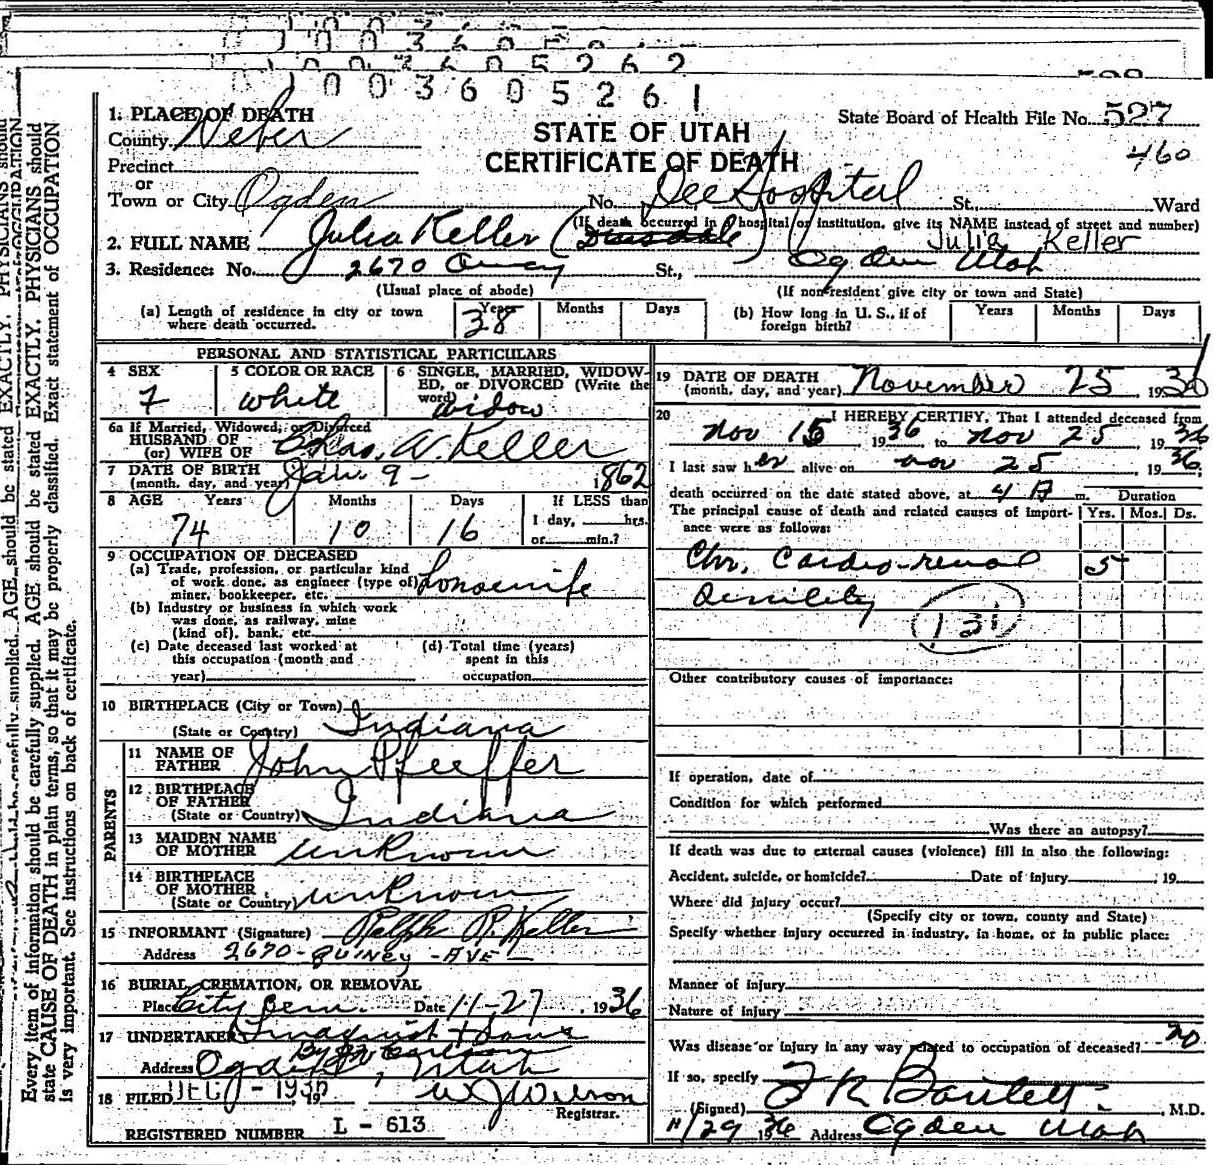 1 0 0 3 6 0 5 2 6 2
1 0 0 3 6 0 5 2 6 1
1. PLACE OF DEATH
County Weber
Precinct
or
Town or City Ogden
STATE OF UTAH
CERTIFICATE OF DEATH
State Board of Health File No. 527
460
No. Dee Hospital St. Ward
(If death occurred in a hospital or institution, give its NAME instead of street and number)
2. FULL NAME Julia Keller (Drusdale) Julia Keller
3. Residence: No. 2670 Quincy St., Ogden Utah
(Usual place of abode) (If non-resident give city or town and State)
(a) Length of residence in city or town where death occurred. Years 38 Months Days
(b) How long in U. S., if of foreign birth? Years Months Days
PERSONAL AND STATISTICAL PARTICULARS
4 SEX F
5 COLOR OR RACE white
6 SINGLE, MARRIED, WIDOWED, or DIVORCED (Write the word) widow
6a If Married, Widowed, or Divorced
HUSBAND OF
(or) WIFE OF Chas. W. Keller
7 DATE OF BIRTH
(month, day, and year) Jan. 9 - 1862
8 AGE Years 74 Months 10 Days 16 If LESS than
1 day, hrs.
or min.?
9 OCCUPATION OF DECEASED
(a) Trade, profession, or particular kind
of work done, as engineer (type of)
miner, bookkeeper, etc. housewife
(b) Industry or business in which work
was done, as railway, mine
(kind of), bank, etc.
(c) Date deceased last worked at
this occupation (month and
year)
(d) Total time (years)
spent in this
occupation
10 BIRTHPLACE (City or Town)
(State or Country) Indiana
PARENTS
11 NAME OF
FATHER John Pfeeffer
12 BIRTHPLACE
OF FATHER
(State or Country) Indiana
13 MAIDEN NAME
OF MOTHER unknown
14 BIRTHPLACE
OF MOTHER
(State or Country) unknown
15 INFORMANT (Signature) Ralph R. Keller
Address 2670 - QUINCY - AVE
16 BURIAL, CREMATION, OR REMOVAL
Place City Cem. Date 11-27, 1936
17 UNDERTAKER Lindquist & Sons
Address Ogden, Utah
18 FILED DEC - 1936 W J Wilson
Registrar.
REGISTERED NUMBER L - 613
19 DATE OF DEATH
(month, day, and year) November 25, 1936
20 I HEREBY CERTIFY, That I attended deceased from
Nov 15, 1936 to Nov 25, 1936
I last saw her alive on Nov 25, 1936,
death occurred on the date stated above, at 4 A m. Duration
The principal cause of death and related causes of importance were as follows: Yrs. Mos. Ds.
Chr. Cardio-renal 5
Senility
131
Other contributory causes of importance:
If operation, date of
Condition for which performed
Was there an autopsy?
If death was due to external causes (violence) fill in also the following:
Accident, suicide, or homicide? Date of injury , 19
Where did injury occur?
(Specify city or town, county and State)
Specify whether injury occurred in industry, in home, or in public place:
Manner of injury
Nature of injury
Was disease or injury in any way related to occupation of deceased? no
If so, specify
(Signed) F R Bartlett, M.D.
11/29 1936 Address Ogden Utah
Every item of information should be carefully supplied. AGE should be stated EXACTLY. PHYSICIANS should
state CAUSE OF DEATH in plain terms, so that it may be properly classified. Exact statement of OCCUPATION
is very important. See instructions on back of certificate.